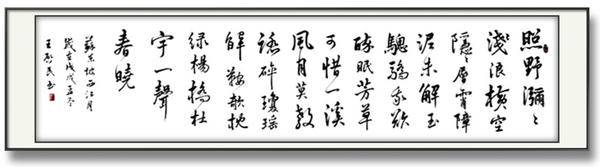 照野瀰々
淺浪橫空
隱々層霄障
泥未解玉
驄驕我欲
醉眠芳草
可惜一溪
風月莫教
踏碎瓊瑤
解鞍欹枕
綠楊橋杜
宇一聲
春曉
蘇東坡西江月
歲在戊戌孟冬
王民书